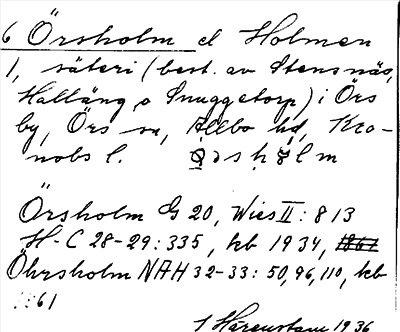 6 Örsholm el Holmen
1, säteri (best. av Stensnäs,
Halläng o Snuggetorp) i Örs
by, Örs sn, Allbo hd, Kro-
nobs l.
Örsholm G 20, Wies II: 813
H-C 28-29: 335, kb 1934, 1861
Öhrsholm NAH 32-33: 50, 96, 110, kb
1861
1936